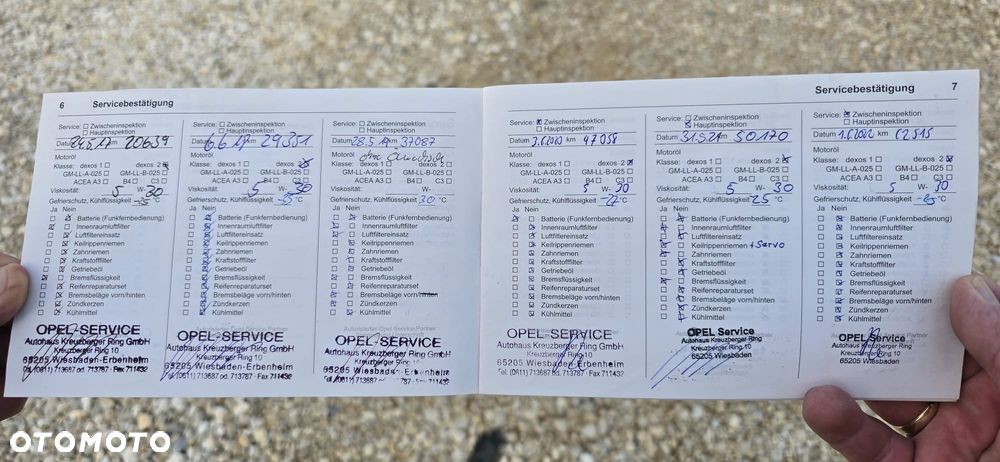 6 Servicebestätigung
Service: Zwischeninspektion
Hauptinspektion
Datum 24.5.17 20639
Motoröl
Klasse: dexos 1 dexos 2
GM-LL-A-025 GM-LL-B-025
ACEA A3 B4 C3
Viskosität: 5 W- 30
Gefrierschutz, Kühlflüssigkeit -35 °C
Ja Nein
Batterie (Funkfernbedienung)
Innenraumluftfilter
Luftfiltereinsatz
Keilrippenriemen
Zahnriemen
Kraftstofffilter
Getriebeöl
Bremsflüssigkeit
Reifenreparaturset
Bremsbeläge vorn/hinten
Zündkerzen
Kühlmittel
OPEL-SERVICE
Autohaus Kreuzberger Ring GmbH
Kreuzberger Ring 10
65205 Wiesbaden-Erbenheim
Tel. (0611) 713687 od. 713787 - Fax 711432
Service: Zwischeninspektion
Hauptinspektion
Datum 29351
Motoröl
Klasse: dexos 1 dexos 2
GM-LL-A-025 GM-LL-B-025
ACEA A3 B4 C3
Viskosität: 5 W- 30
Gefrierschutz, Kühlflüssigkeit °C
Ja Nein
Batterie (Funkfernbedienung)
Innenraumluftfilter
Luftfiltereinsatz
Keilrippenriemen
Zahnriemen
Kraftstofffilter
Getriebeöl
Bremsflüssigkeit
Reifenreparaturset
Bremsbeläge vorn/hinten
Zündkerzen
Kühlmittel
OPEL-SERVICE
Autohaus Kreuzberger Ring GmbH
Kreuzberger Ring 10
65205 Wiesbaden-Erbenheim
Tel. (0611) 713687 od. 713787 - Fax 711432
Service: Zwischeninspektion
Hauptinspektion
Datum 28.5.19 37087
Motoröl
Klasse: dexos 1 dexos 2
GM-LL-A-025 GM-LL-B-025
ACEA A3 B4 C3
Viskosität: W-
Gefrierschutz, Kühlflüssigkeit 30 °C
Ja Nein
Batterie (Funkfernbedienung)
Innenraumluftfilter
Luftfiltereinsatz
Keilrippenriemen
Zahnriemen
Kraftstofffilter
Getriebeöl
Bremsflüssigkeit
Reifenreparaturset
Bremsbeläge vorn/hinten
Zündkerzen
Kühlmittel
OPEL-SERVICE
Autohaus Kreuzberger Ring GmbH
Kreuzberger Ring
65205 Wiesbaden-Erbenheim
Tel. (0611) 713687 - Fax 711432
Servicebestätigung 7
Service: Zwischeninspektion
Hauptinspektion
Datum km 47058
Motoröl
Klasse: dexos 1 dexos 2
GM-LL-A-025 GM-LL-B-025
ACEA A3 B4 C3
Viskosität: 5 W- 30
Gefrierschutz, Kühlflüssigkeit -22 °C
Ja Nein
Batterie (Funkfernbedienung)
Innenraumluftfilter
Luftfiltereinsatz
Keilrippenriemen
Zahnriemen
Kraftstofffilter
Getriebeöl
Bremsflüssigkeit
Reifenreparaturset
Bremsbeläge vorn/hinten
Zündkerzen
Kühlmittel
OPEL-SERVICE
Autohaus Kreuzberger Ring GmbH
Kreuzberger Ring 10
65205 Wiesbaden-Erbenheim
Tel. (0611) 713687 od. 713787 - Fax 711432
Service: Zwischeninspektion
Hauptinspektion
Datum 31.5.21 50170
Motoröl
Klasse: dexos 1 dexos 2
GM-LL-A-025 GM-LL-B-025
ACEA A3 B4 C3
Viskosität: 5 W- 30
Gefrierschutz, Kühlflüssigkeit 25 °C
Ja Nein
Batterie (Funkfernbedienung)
Innenraumluftfilter
Luftfiltereinsatz
Keilrippenriemen + Servo
Zahnriemen
Kraftstofffilter
Getriebeöl
Bremsflüssigkeit
Reifenreparaturset
Bremsbeläge vorn/hinten
Zündkerzen
Kühlmittel
OPEL Service
Autohaus Kreuzberger Ring GmbH
Kreuzberger Ring 10
65205 Wiesbaden
Service: Zwischeninspektion
Hauptinspektion
Datum 1.6.2022 km
Motoröl
Klasse: dexos 1 dexos 2
GM-LL-A-025 GM-LL-B-025
ACEA A3 B4 C3
Viskosität: 5 W- 30
Gefrierschutz, Kühlflüssigkeit -25 °C
Ja Nein
Batterie (Funkfernbedienung)
Innenraumluftfilter
Luftfiltereinsatz
Keilrippenriemen
Zahnriemen
Kraftstofffilter
Getriebeöl
Bremsflüssigkeit
Reifenreparaturset
Bremsbeläge vorn/hinten
Zündkerzen
Kühlmittel
OPEL Service
Autohaus Kreuzberger Ring GmbH
Kreuzberger Ring 10
65205 Wiesbaden
OTOMOTO